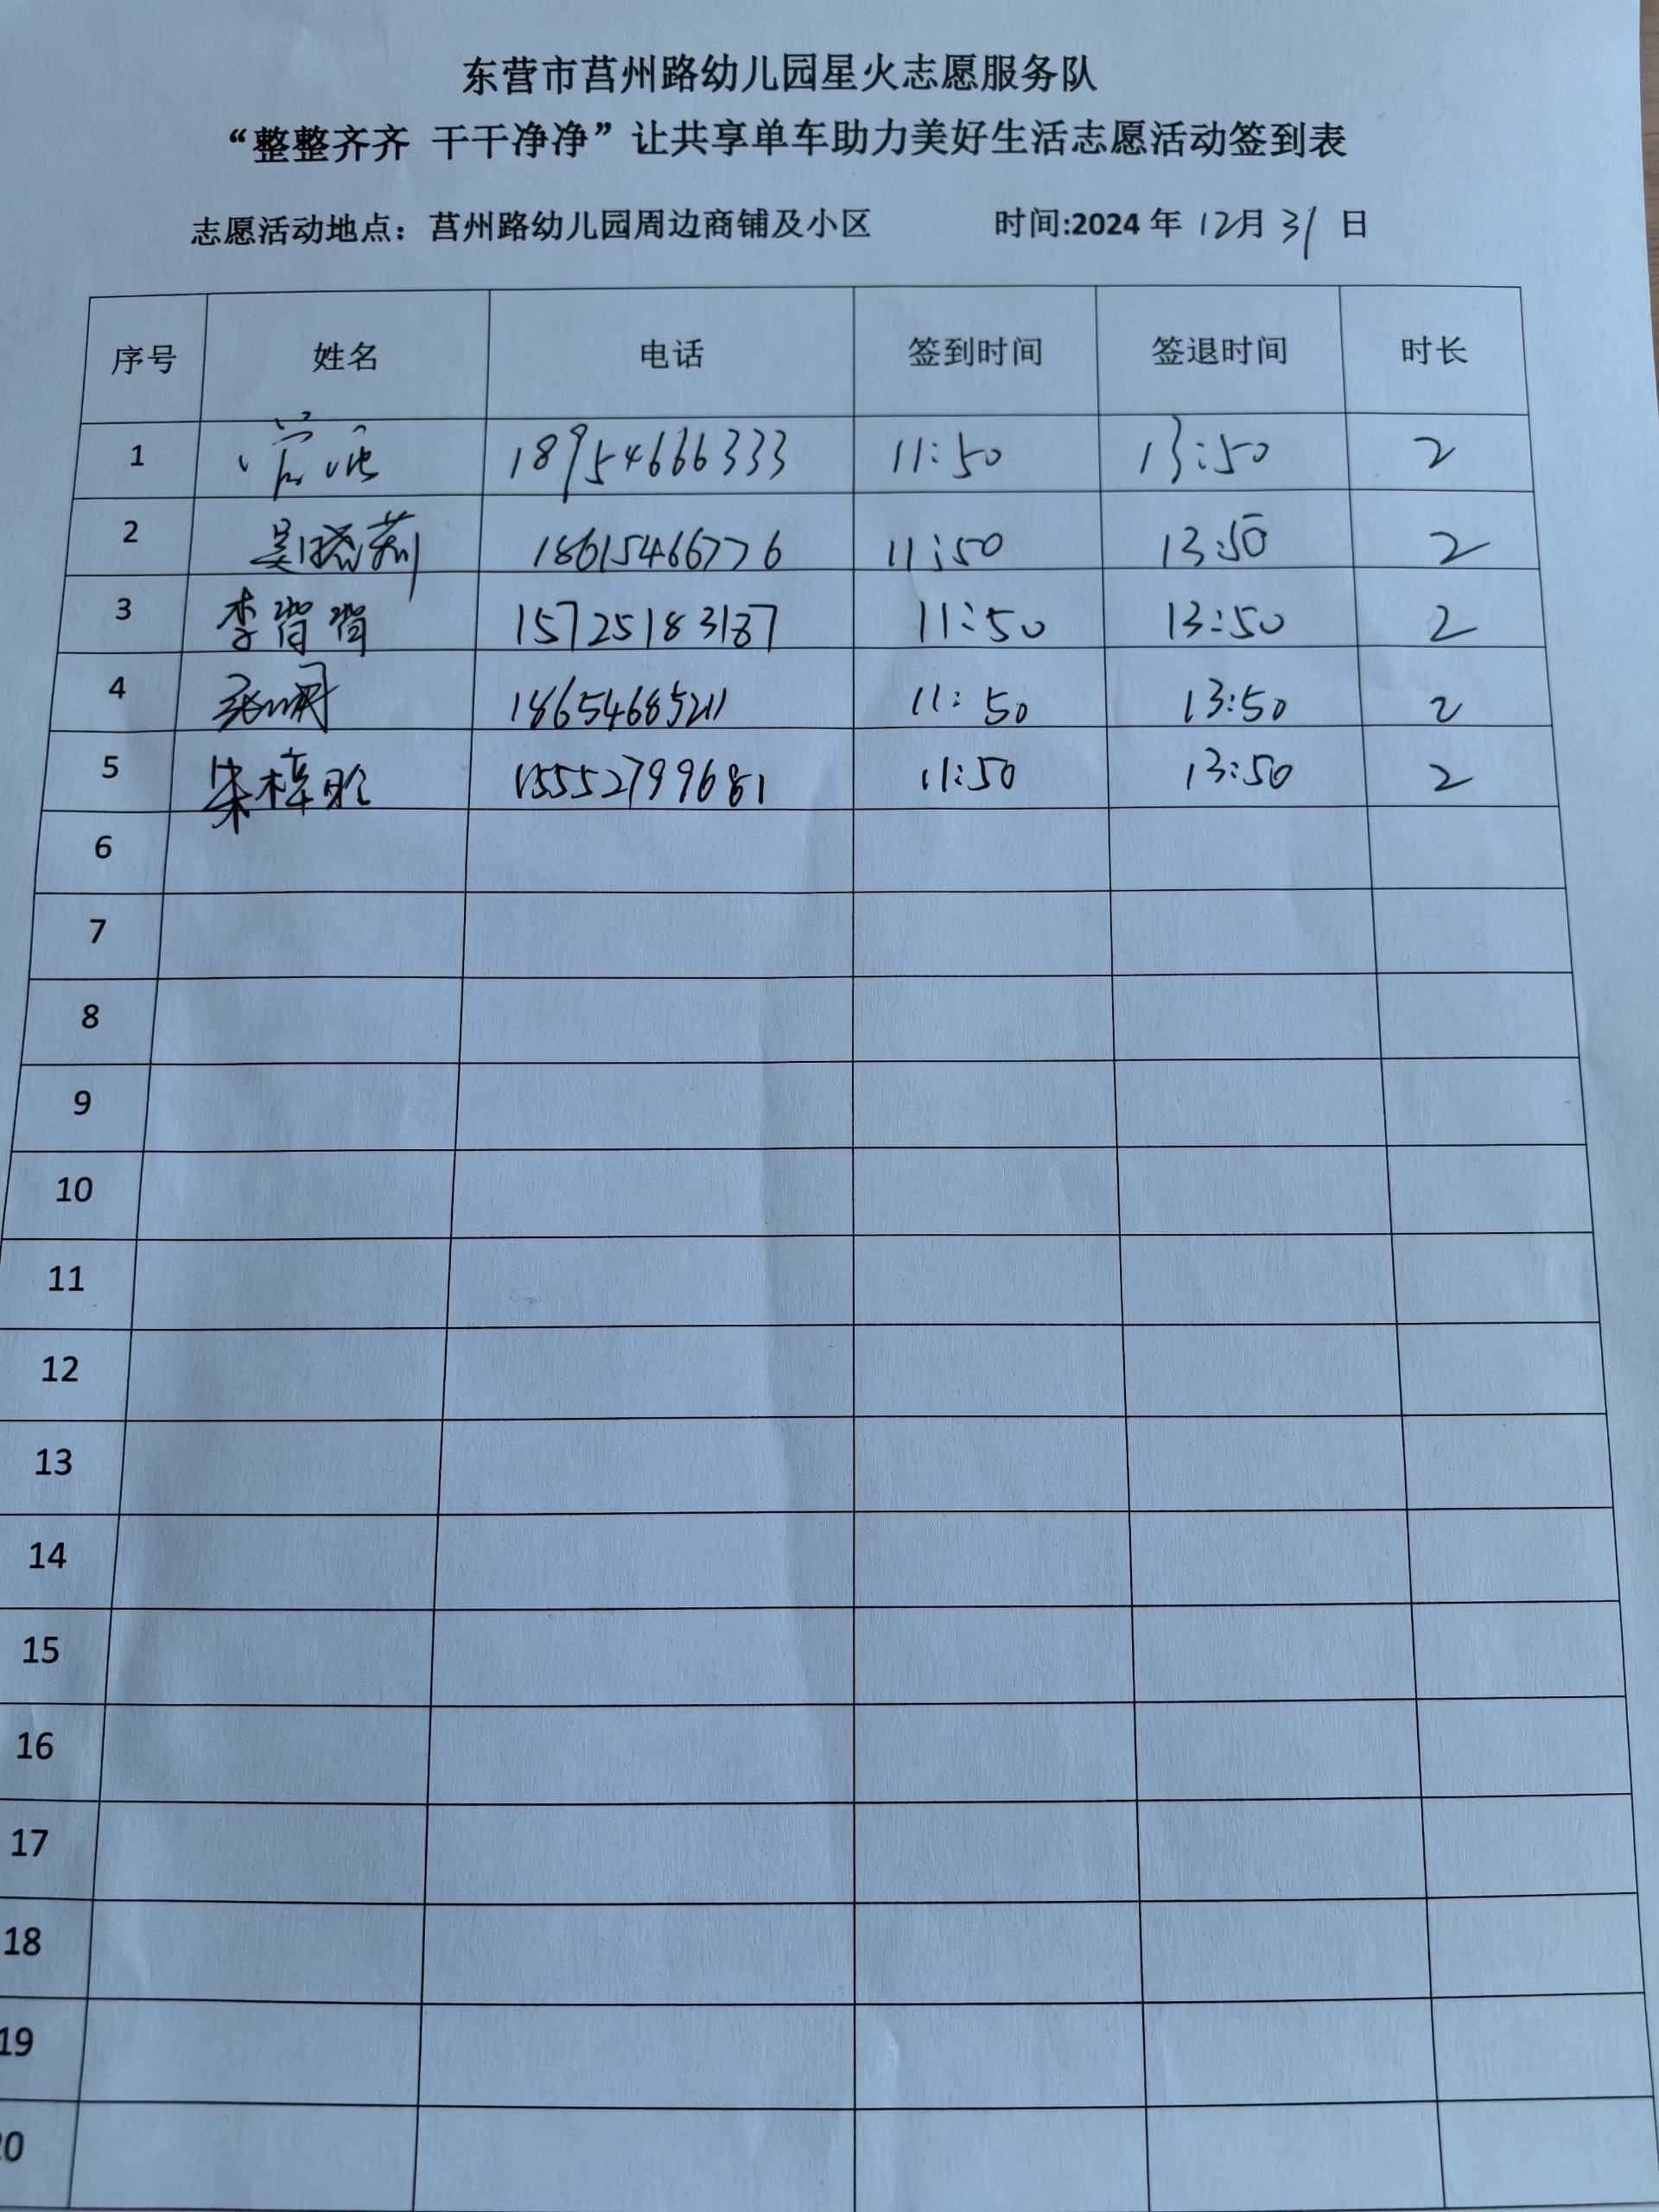 东营市莒州路幼儿园星火志愿服务队
“整整齐齐 干干净净”让共享单车助力美好生活志愿活动签到表
志愿活动地点：莒州路幼儿园周边商铺及小区 时间:2024 年 12月 31 日
序号 姓名 电话 签到时间 签退时间 时长
1 18954666333 11:50 13:50 2
2 吴晓莉 18615466776 11:50 13:50 2
3 李背背 15725183187 11:50 13:50 2
4 18654685211 11:50 13:50 2
5 朱梓聆 15552799681 11:50 13:50 2
6
7
8
9
10
11
12
13
14
15
16
17
18
19
20